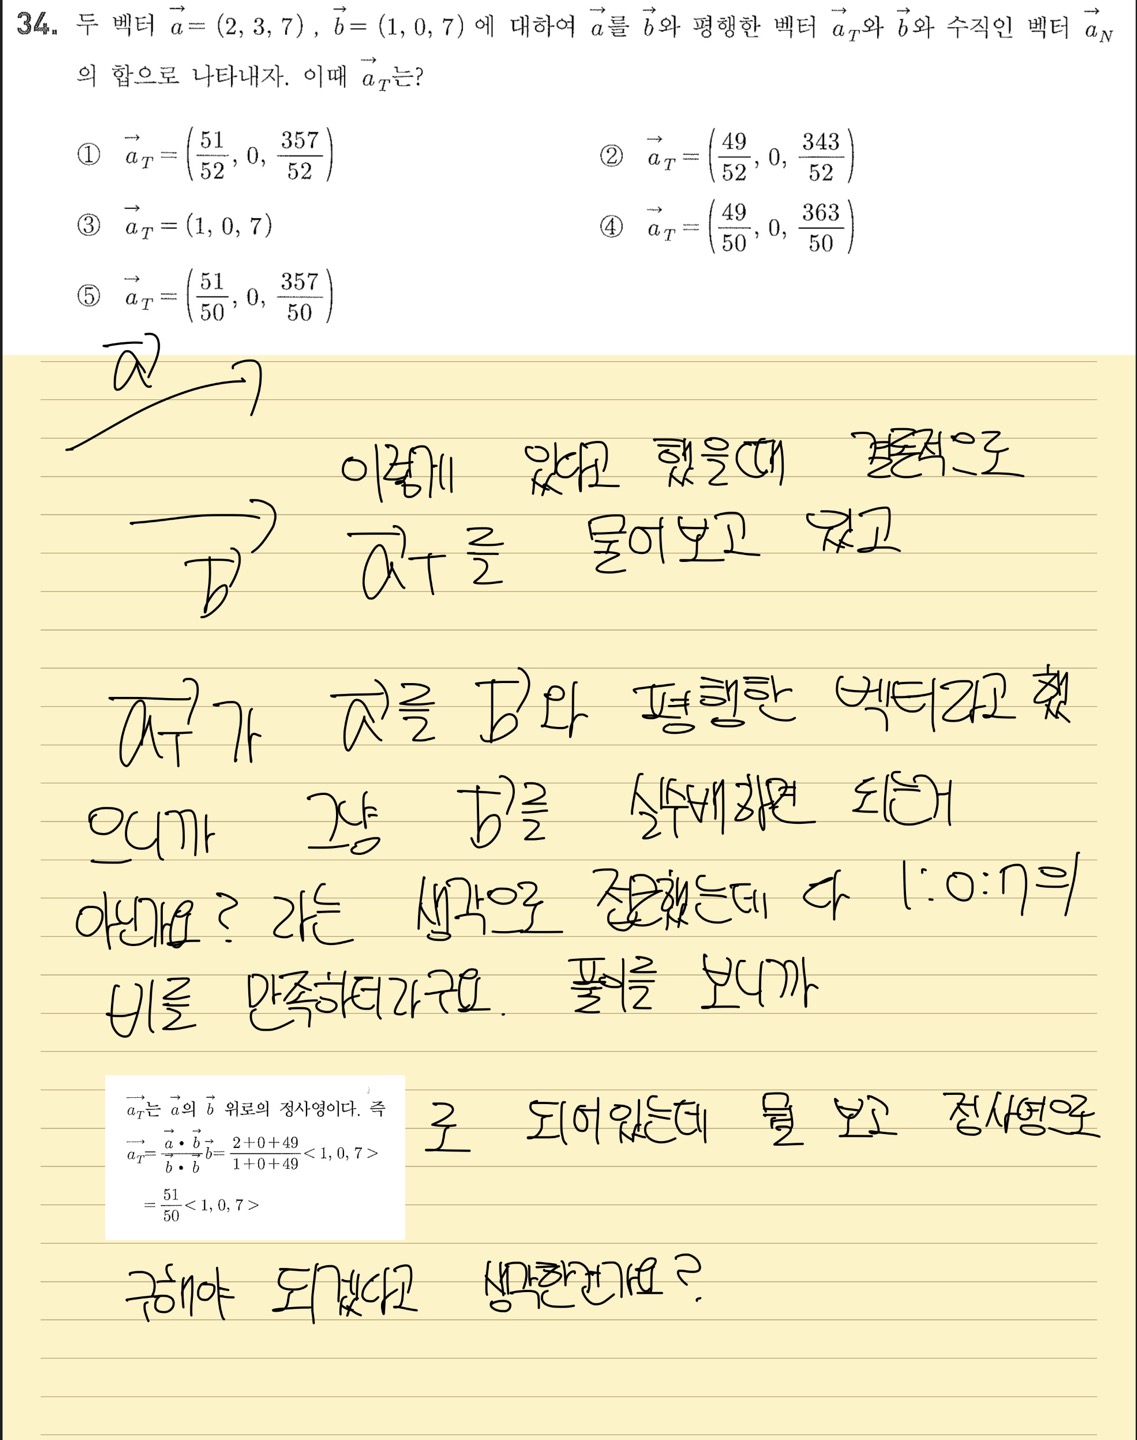 34. 두 벡터 a→ = (2, 3, 7), b→ = (1, 0, 7)에 대하여 a→를 b→와 평행한 벡터 a→_T와 b→와 수직인 벡터 a→_N
의 합으로 나타내자. 이때 a→_T는?
① a→_T = (51/52, 0, 357/52) ② a→_T = (49/52, 0, 343/52)
③ a→_T = (1, 0, 7) ④ a→_T = (49/50, 0, 363/50)
⑤ a→_T = (51/50, 0, 357/50)
a→
이렇게 있다고 했을때 결론적으로
b→
a→_T를 물어보고 있고
a_T→가 a→를 b→와 평행한 벡터라고 했
으니까 그냥 b→를 실수배하면 되는거
아닌가요? 라는 생각으로 접근했는데 다 1:0:7의
비를 만족하더라구요. 풀이를 보니까
a_T→는 a→의 b→ 위로의 정사영이다. 즉
a_T→ = (a→ • b→)/(b→ • b→) b→ = (2+0+49)/(1+0+49) < 1, 0, 7 >
= 51/50 < 1, 0, 7 >
로 되어있는데 뭘 보고 정사영으로
구해야 되겠다고 생각한건가요?